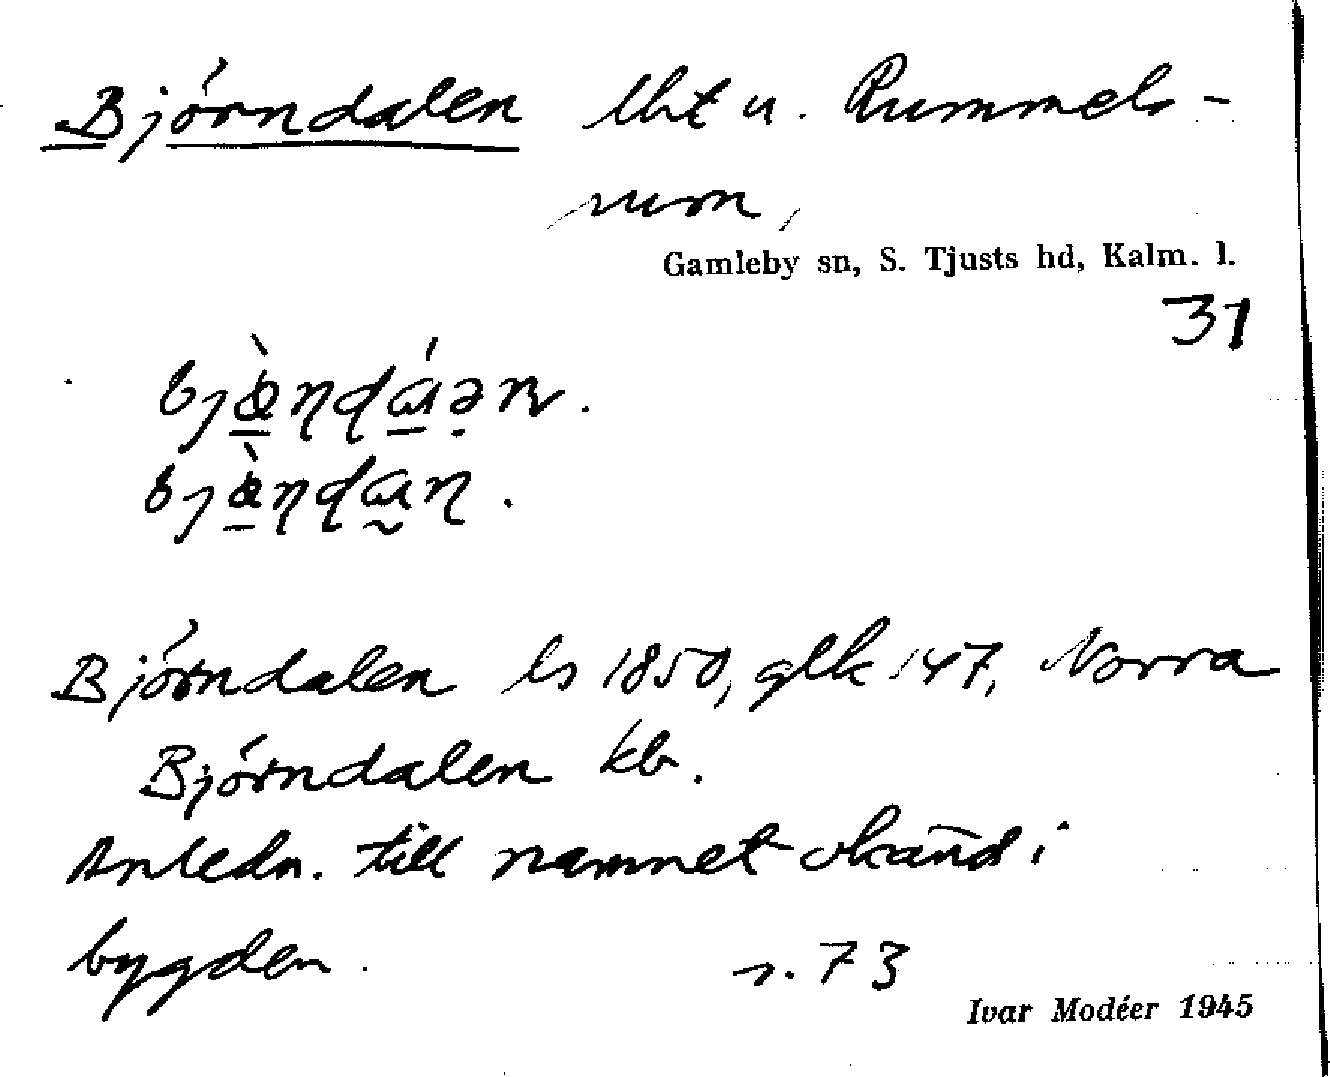 Björndalen lht u. Rummels-
rum,
Gamleby sn, S. Tjusts hd, Kalm. l.
31
Björndalen ls 1850, glk 147, Norra
Björndalen kb.
Anledn. till namnet okänd i
bygden.
s. 73
Ivar Modéer 1945